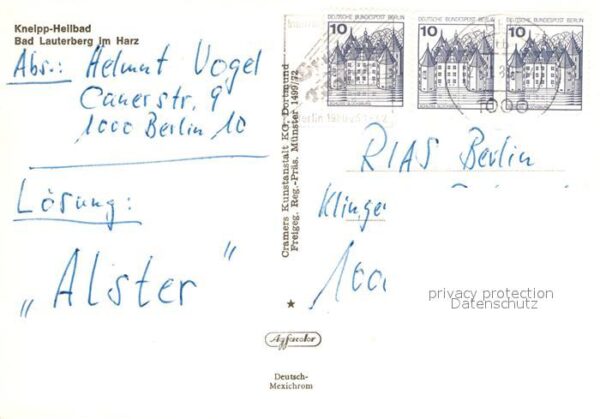 Kneipp-Heilbad
Bad Lauterberg im Harz
Abs.: Helmut Vogel
Cauerstr. 9
1000 Berlin 10
Lösung:
„Alster“
Cramers Kunstanstalt KG, Dortmund
Freigeg. Reg.-Präs. Münster 1499/72
Agfacolor
Deutsch-
Mexichrom
10 DEUTSCHE BUNDESPOST BERLIN
10 DEUTSCHE BUNDESPOST BERLIN
10 DEUTSCHE BUNDESPOST BERLIN
1000
RIAS Berlin
Klinge
100
privacy protection
Datenschutz